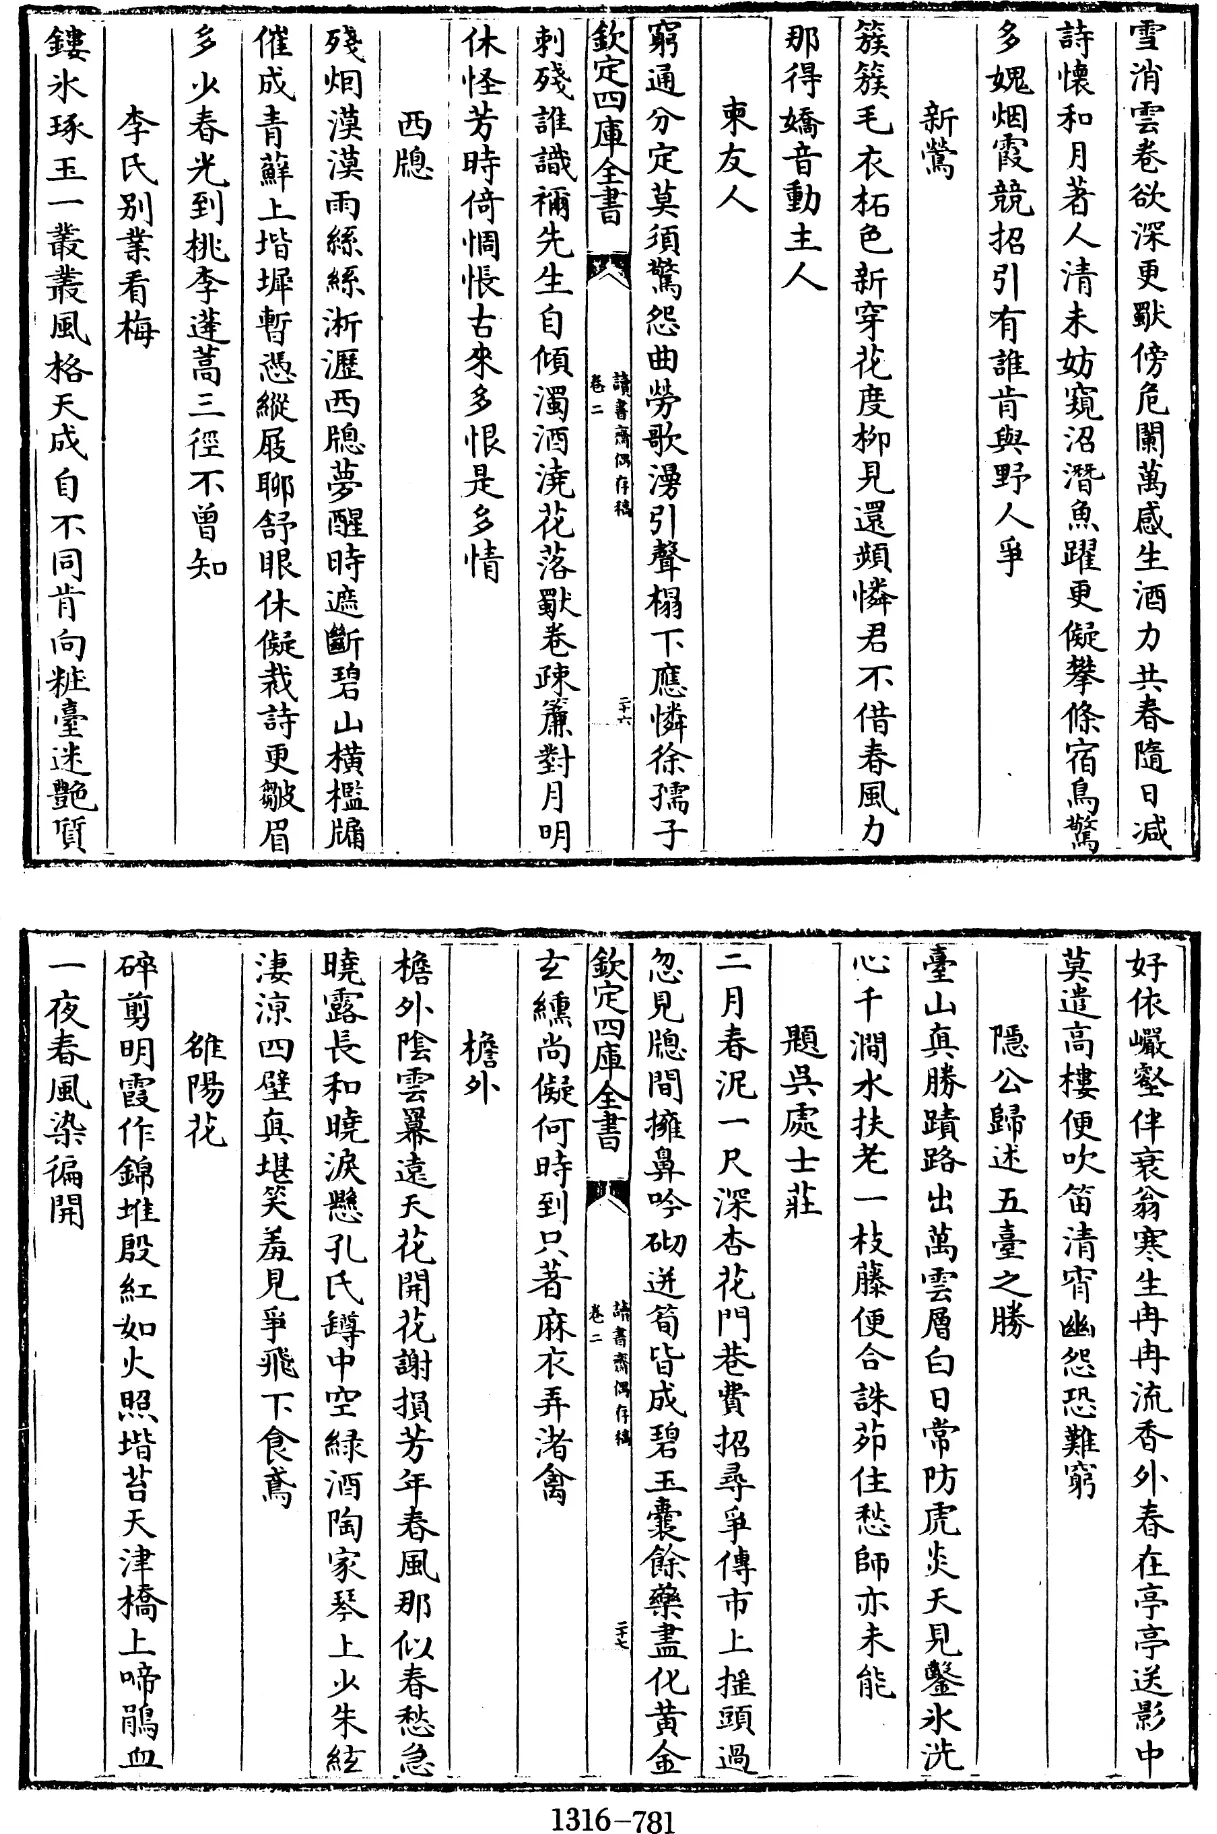 雪消雲卷欲深更獸傍危闌萬感生酒力共春隨日減
詩懷和月著人清未妨窺沼潛魚躍更儗攀條宿鳥驚
多媿烟霞競招引有誰肯與野人爭
新鶯
簇簇毛衣柘色新穿花度柳見還頻憐君不借春風力
那得嬌音動主人
柬友人
窮通分定莫須驚怨曲勞歌漫引聲榻下應憐徐孺子
欽定四庫全書
讀書齋偶存稿
卷二
二十六
刺殘誰識禰先生自傾濁酒澆花落獸卷疎簾對月明
休怪芳時倚惆悵古來多恨是多情
西牕
殘烟漠漠雨絲絲淅瀝西牕夢醒時遮斷碧山橫檻牖
催成青蘚上堦墀暫憑縱屐聊舒眼休儗裁詩更皺眉
多少春光到桃李蓬蒿三徑不曾知
李氏別業看梅
鏤氷琢玉一叢叢風格天成自不同肯向粧臺迷艷質
好依巖壑伴衰翁寒生冉冉流香外春在亭亭送影中
莫遣高樓便吹笛清宵幽怨恐難窮
隱公歸述五臺之勝
臺山真勝蹟路出萬雲層白日常防虎炎天見鑿氷洗
心千澗水扶老一枝藤便合誅茆住愁師亦未能
題吳處士莊
二月春泥一尺深杏花門巷費招尋爭傳市上搖頭過
忽見牕間擁鼻吟砌迸筍皆成碧玉囊餘藥盡化黃金
欽定四庫全書
讀書齋偶存稿
卷二
二十七
玄纁尚儗何時到只著麻衣弄渚禽
檐外
檐外陰雲羃遠天花開花謝損芳年春風那似春愁急
曉露長和曉淚懸孔氏罇中空綠酒陶家琴上少朱絃
淒涼四壁真堪笑羞見爭飛下食鳶
雒陽花
碎剪明霞作錦堆殷紅如火照堦苔天津橋上啼鵑血
一夜春風染徧開
1316-781